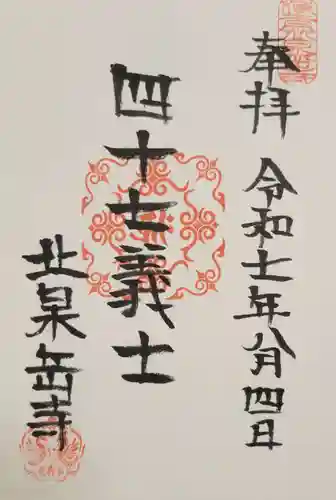 奉拝
令和七年八月四日
四十七義士
北泉岳寺